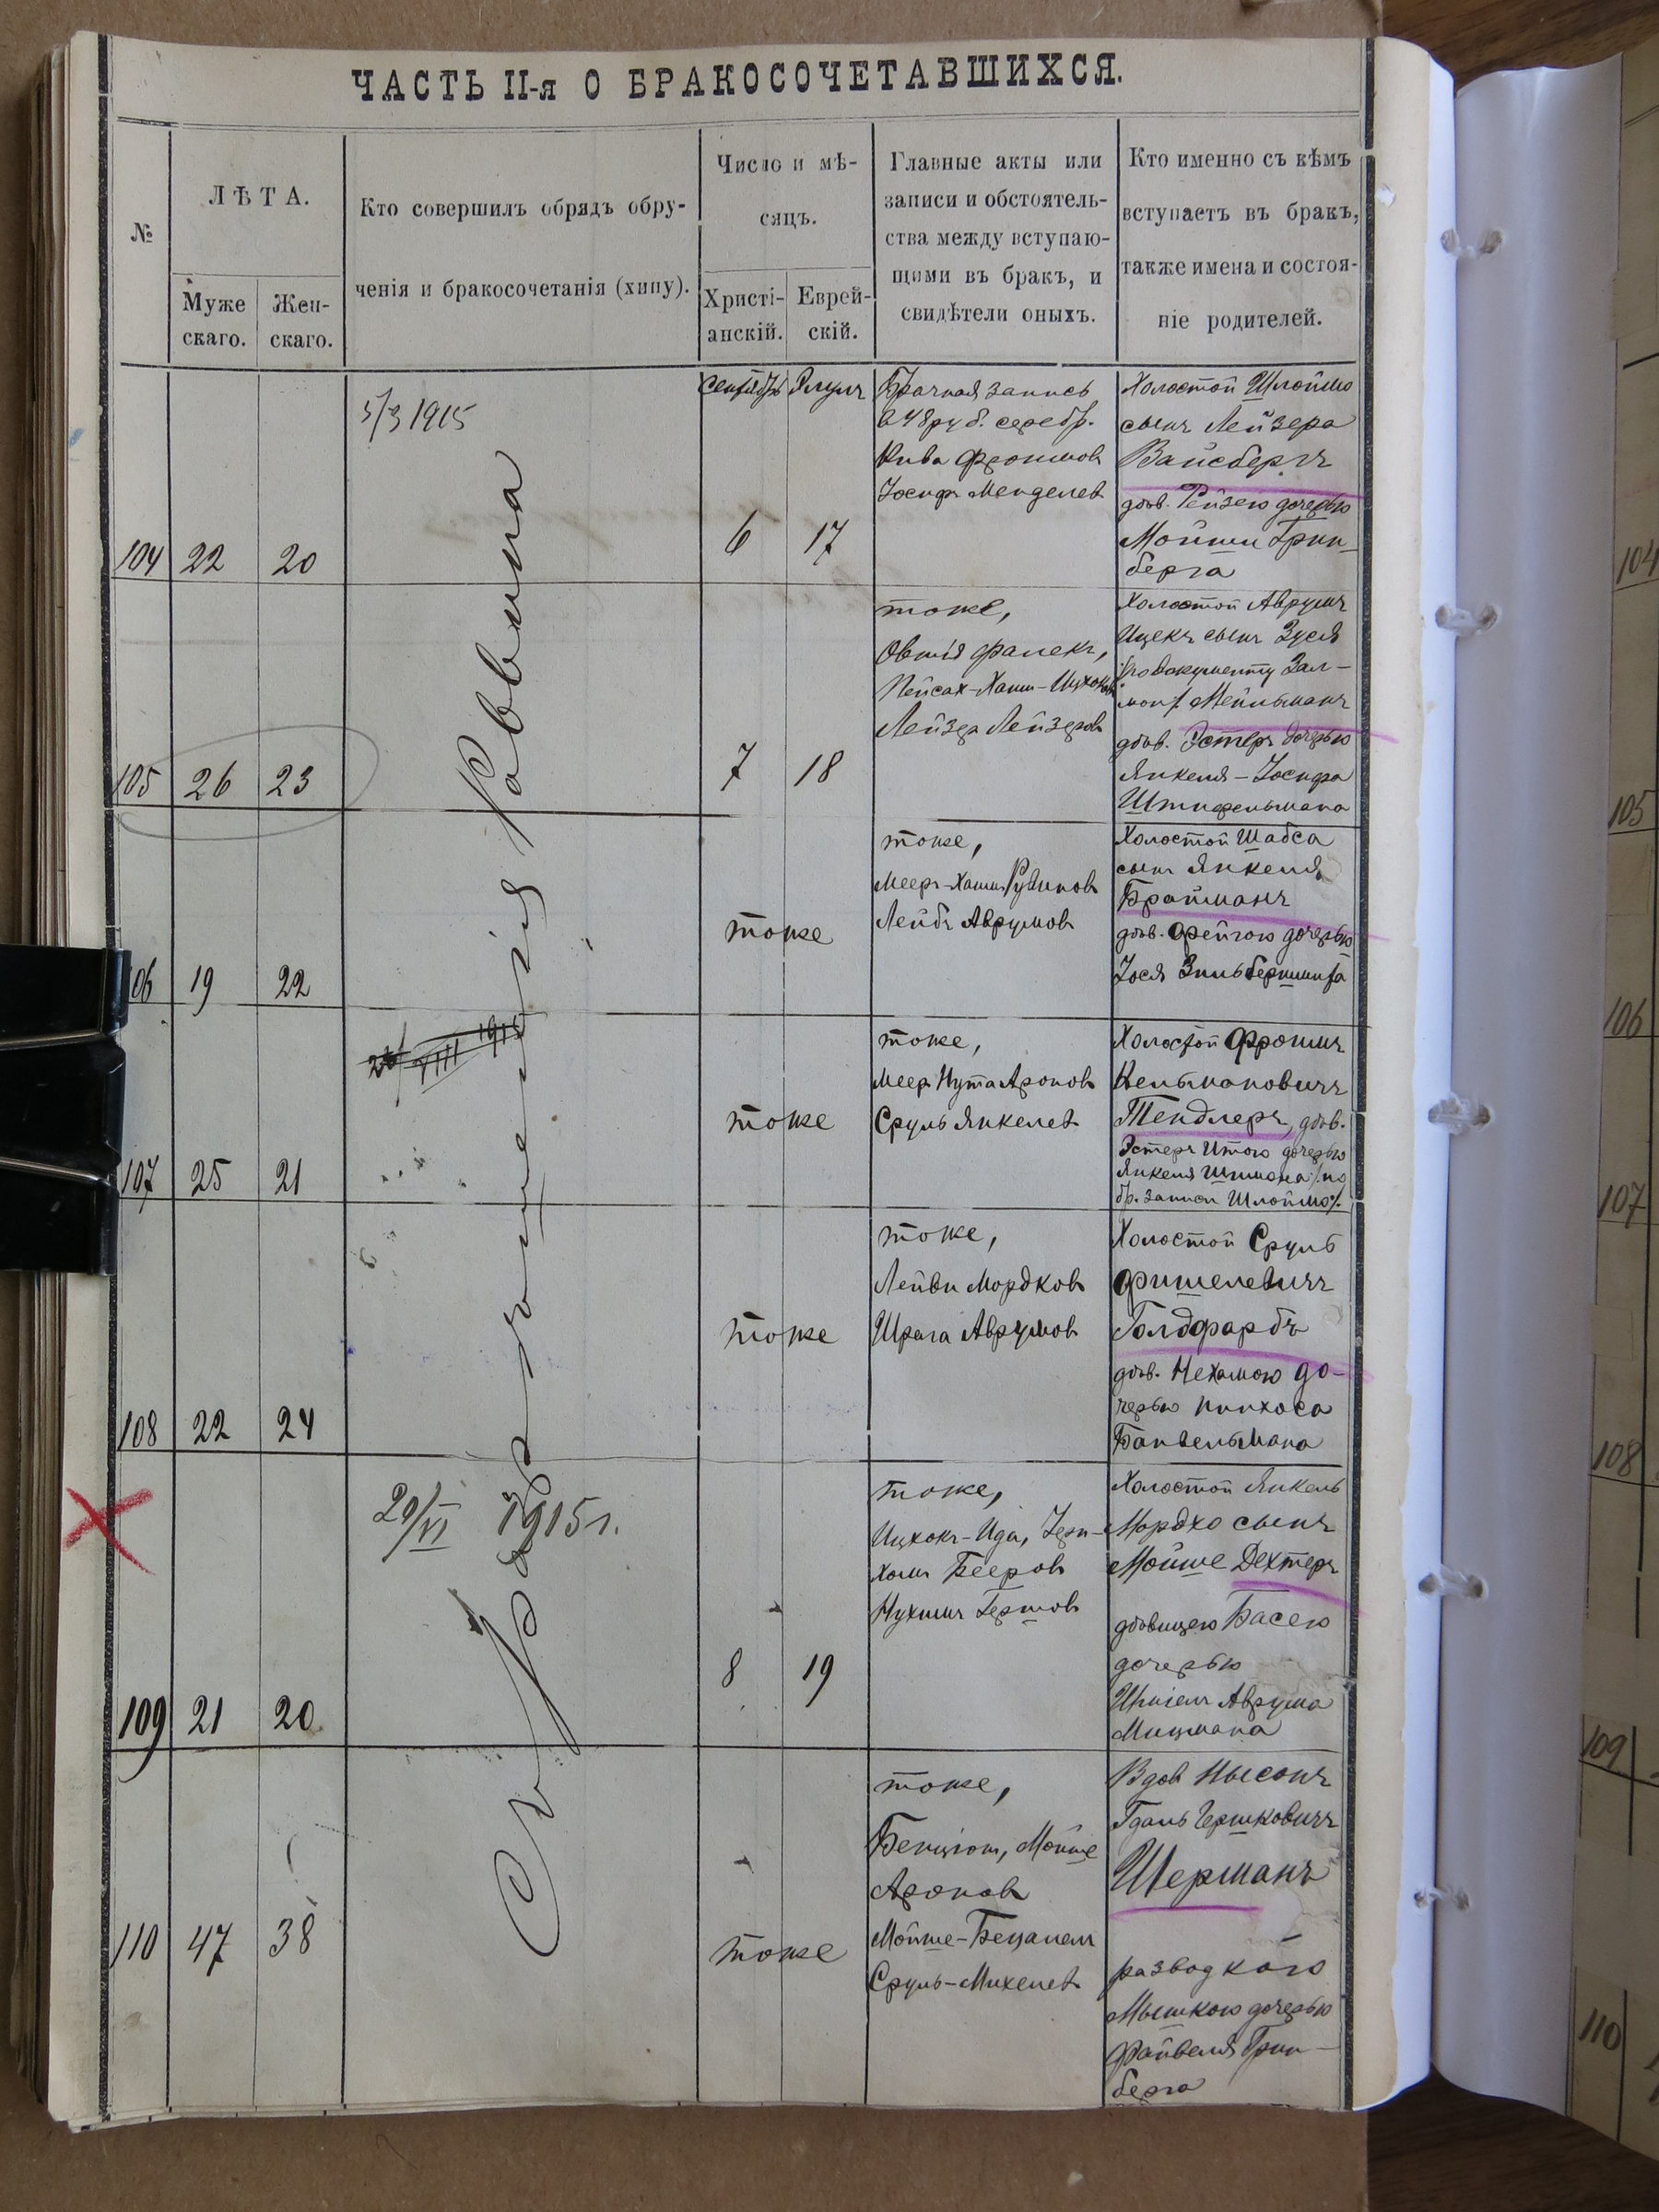 ЧАСТЬ II-я О БРАКОСОЧЕТАВШИХСЯ.
№
ЛѢТА.
Муже
скаго.
Жен-
скаго.
Кто совершилъ обрядъ обру-
ченія и бракосочетанія (хипу).
Число и мѣ-
сяцъ.
Христі-
анскій.
Еврей-
скій.
Главные акты или
записи и обстоятель-
ства между вступаю-
щими въ бракъ, и
свидѣтели оныхъ.
Кто именно съ кѣмъ
вступаетъ въ бракъ,
также имена и состоя-
ніе родителей.
104
22
20
5/3 1915
Сентябрь
Элулъ
6
17
Брачная запись
в 48 руб. серебр.
Кива Фроимов
Іосифъ Менделев
Холостой Шлойма
сынъ Лейзера
Вайсбергъ
дѣв. Рейзею дочерью
Мойши Грин-
берга
105
26
23
7
18
тоже,
Овшія Фалекъ,
Пейсах-Хаим-Ицхоков
Лейзер Лейзеров
Холостой Аврумъ
Ицекъ сынъ Зуся
/:по документу Зал-
мон/: Мейльманъ
дѣв. Эстеръ дочерью
Янкеля-Іосифа
Штифельмана
106
19
22
тоже
тоже,
Мееръ-Хаимъ Рувинов
Лейбъ Аврумов
Холостой Шабса
сынъ Янкеля
Бройманъ
дѣв. Фейгою дочерью
Іося Зильберштифа
107
25
21
1915
тоже
тоже,
Меер Нута Аронов
Сруль Янкелев
Холостой Фроимъ
Кельмановичъ
Тендлеръ, дѣв.
Эстеръ Итою дочерью
Янкеля Шимона /:по
бр. записи Шлойма/:
108
22
24
тоже
тоже,
Лейви Мордков
Шрага Аврумов
Холостой Сруль
Фишелевичъ
Голдфарбъ
дѣв. Нехамою до-
черью Пинхоса
Банвельмана
109
21
20
29/VI 1915 г.
8
19
тоже,
Ицхокъ-Ида, Іери-
хомъ Бееров
Нухимъ Гершов
Холостой Янкель
Мордхо сынъ
Мойше Дехтеръ
дѣвицею Басею
дочерью
Аврума
Мицмана
110
47
38
тоже
тоже,
Бенціон, Мойше
Аронов
Мойше-Бецалелъ
Сруль-Михелев
Вдов Нысонъ
Гдаль Гершковичъ
Шерманъ
разводкою
Мышкою дочерью
Файвеля Грин-
берга
Раввина
104
105
106
107
108
109
110